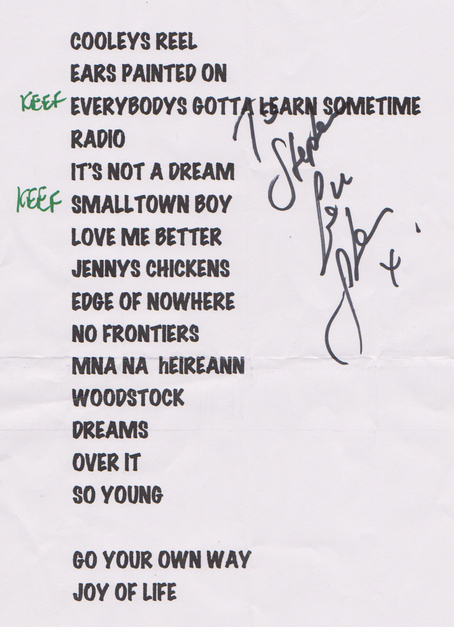 COOLEYS REEL
EARS PAINTED ON
KEEF EVERYBODYS GOTTA LEARN SOMETIME
RADIO
IT'S NOT A DREAM
KEEF SMALLTOWN BOY
LOVE ME BETTER
JENNYS CHICKENS
EDGE OF NOWHERE
NO FRONTIERS
MNA NA hEIREANN
WOODSTOCK
DREAMS
OVER IT
SO YOUNG
GO YOUR OWN WAY
JOY OF LIFE
To
Stephen
x